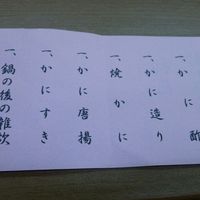 一、かに酢
一、かに造り
一、焼かに
一、かに唐揚
一、かにすき
一、鍋の後の雑炊